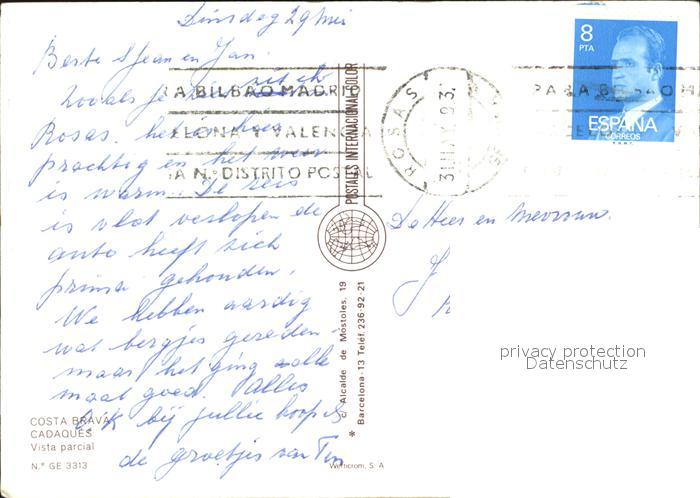 Dinsdag 29 mei
Beste Sjean en Jan.
Zooals je ziet zit ik
Rosas. het is hier
prachtig en het weer
is warm. De reis
is vlot verlopen de
auto heeft zich
prima gehouden.
We hebben aardig
wat bergjes gereden
maar het ging alle
maal goed. Alles
ook bij jullie hoop ik
de groetjes van
COSTA BRAVA
CADAQUES
Vista parcial
N.º GE 3313
POSTALES INTERNACIONAL COLOR
c/ Alcalde de Mostoles, 19
* Barcelona-13 Teléf. 236-92-21
Werticrom, S. A
A BILBAO MADRID
ELONA Y VALENCIA
A N.º DISTRITO POSTAL
ROSAS
8
PTA
ESPAÑA
CORREOS
F.N.M.T.
De Heer en Mevrouw.
J
privacy protection
Datenschutz